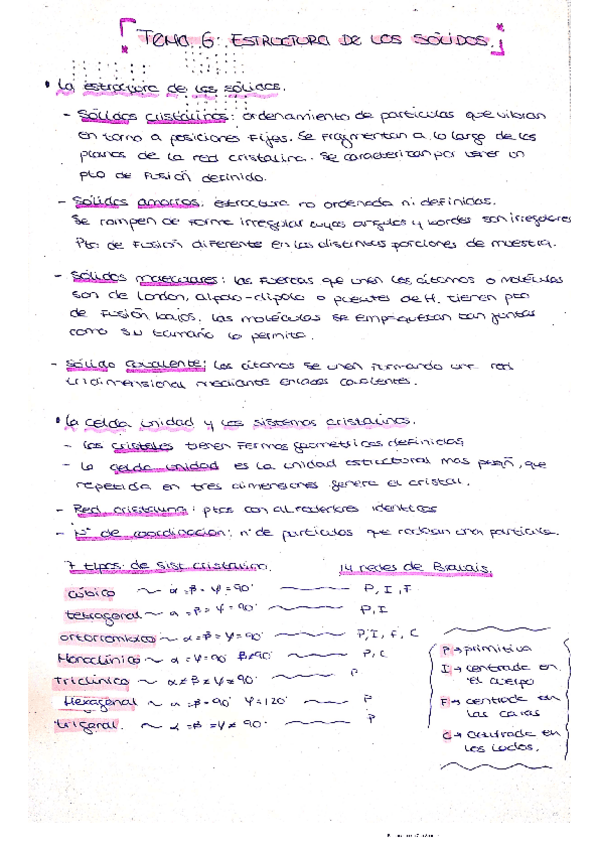 TEMA 6: ESTRUCTURA DE LOS SÓLIDOS.
• La estructura de los sólidos.
- Sólidos cristalinos: ordenamiento de partículas que vibran
en torno a posiciones fijas. Se fragmentan a lo largo de los
planos de la red cristalina. Se caracterizan por tener un
pto de fusión definido.
- Sólidos amorfos: estructura no ordenada ni definidas.
Se rompen de forma irregular cuyos angulos y bordes son irregulares
Pto. de fusión diferente en las distintas porciones de muestra.
- Sólidos moleculares: las fuerzas que unen los átomos o moléculas
son de london, dipolo-dipolo o puentes de H. tienen pto
de fusión bajos. las moléculas se empaquetan tan juntas
como su tamaño lo permite.
- Sólido covalente: los átomos se unen formando una red
tridimensional mediante enlaces covalentes.
• La celda unidad y los sistemas cristalinos.
- los cristales tienen formas geometricas definidas
- la celda unidad es la unidad estructural mas peqñ, que
repetida en tres dimensiones genera el cristal.
- Red cristalina: ptos con alrededores identicos
- Nº de coordinación: nº de partículas que rodean una partícula.
7 tipos de sist. cristalino. 14 redes de Bravais.
cúbico ~ α=β=γ=90° P, I, F
tetragonal ~ α=β=γ=90° P, I
ortorrómbico ~ α=β=γ=90° P, I, F, C
Monoclínico ~ α=γ=90° β≠90° P, C
Triclínico ~ α≠β≠γ≠90° P
Hexagonal ~ α=β=90° γ=120° P
trigonal. ~ α=β=γ≠90° P
P → primitiva
I → centrada en
el cuerpo
F → centrada en
las caras
C → centrada en
los lados.